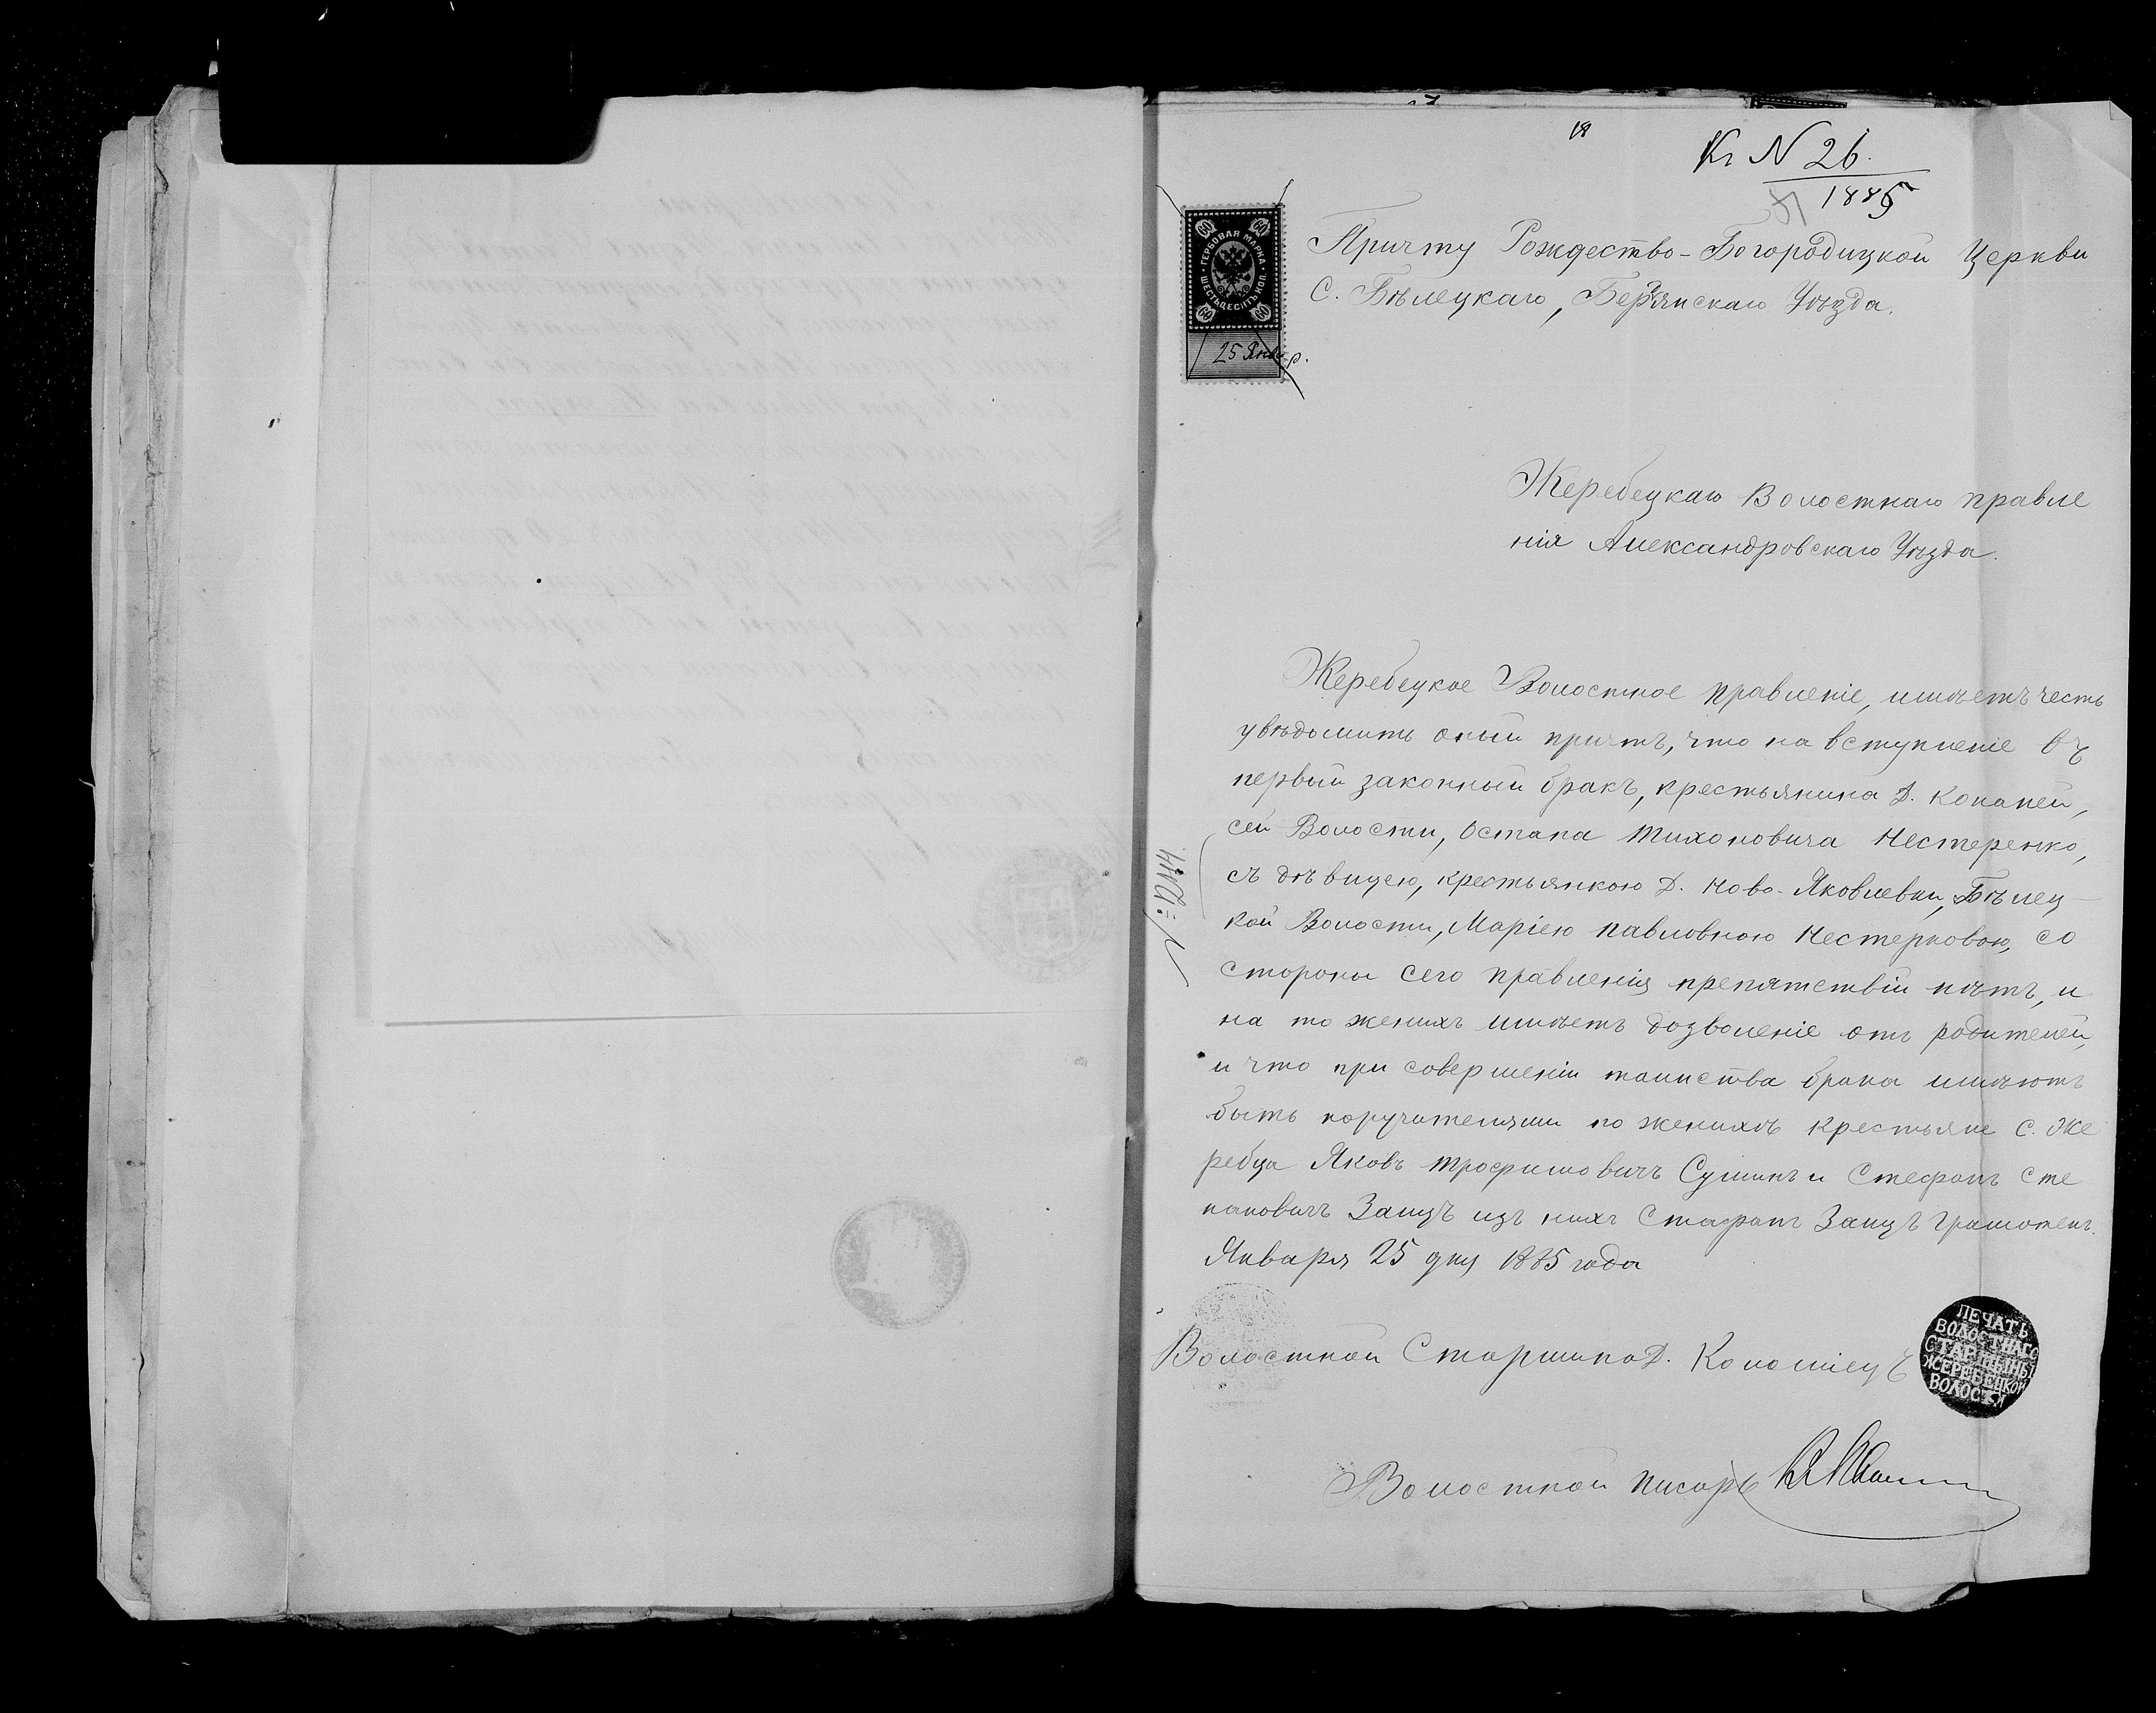 18
Къ N 26.
1885
ГЕРБОВАЯ МАРКА
ШЕСТЬДЕСЯТЪ КОП.
60 60
60 60
25 Январ.
Причту Рождество-Богородицкой Церкви
С. Бѣлецкаго, Бердянскаго Уѣзда.
Жеребецкаго Волостнаго правле
нія Александровскаго Уѣзда.
Жеребецкое Волостное правленіе, имѣетъ честь
увѣдомить оный притъ, что на вступленіе въ
первый законный бракъ, крестьянина Д. Копаней,
сей Волости, Остапа Тихоновича Нестеренко,
съ дѣвицею, крестьянкою Д. Ново-Яковлевки, Бѣлец-
кой Волости, Маріею Павловною Нестерковою, со
стороны сего правленія препятствій нѣтъ, и
на то женихъ имѣетъ дозволеніе отъ родителей,
и что при совершеніи таинства брака имѣютъ
быть поручителями по женихѣ крестьяне С. Же
ребца Яковъ Трофимовичъ Сушинъ и Стефанъ Сте
пановичъ Заицъ изъ нихъ Стафанъ Заицъ грамотенъ.
Января 25 дня 1885 года
№ 244.
Волостной Старшина Д. Коломіецъ
ПЕЧАТЬ
ВОЛОСТНАГО
СТАРШИНЫ
ЖЕРЕБЕЦКОЙ
ВОЛОСТИ
Волостной писарь